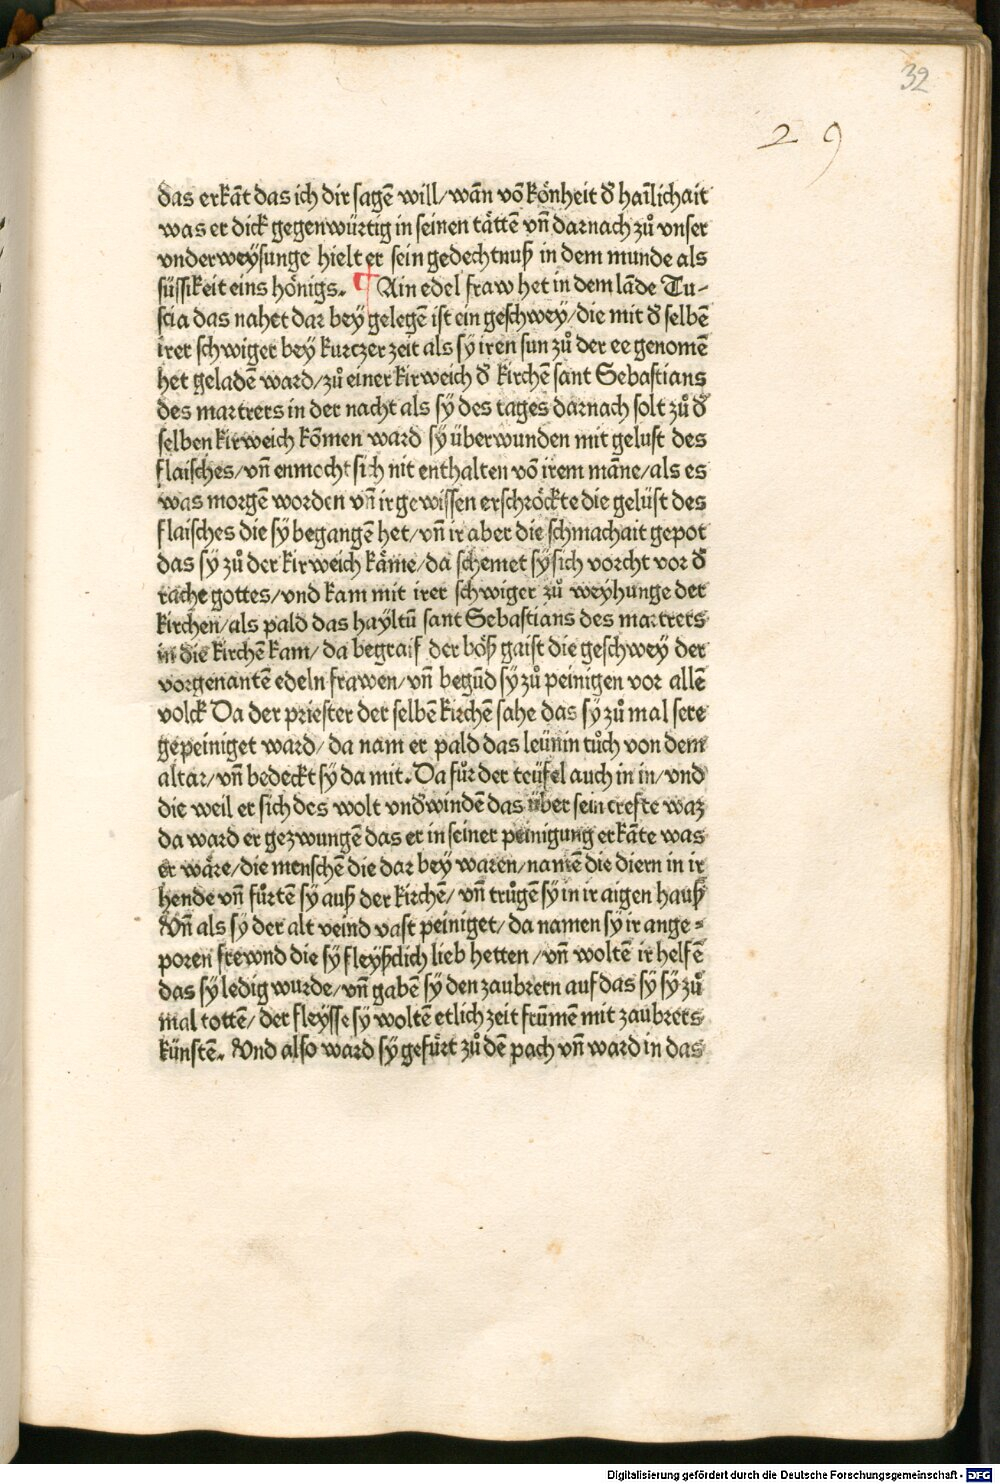 32
29
das erkāt das ich dir sagē will/wān vō könheit d̄ haīlichait
was er dick gegenwürtig in seinen tättē vn̄ darnach zů vnser
vnderweÿsunge hielt er sein gedechtnuß in dem munde als
süssikeit eins hönigs. ¶ Ain edel fraw het in dem lāde Tu-
scia das nahet dar beÿ gelegē ist ein geschweÿ/die mit d̄ selbē
irer schwiger beÿ kurczer zeit als sÿ iren sun zů der ee genomē
het geladē ward/zů einer kirweich d̄ kirchē sant Sebastians
des martrers in der nacht als sÿ des tages darnach solt zů d̄
selben kirweich kōmen ward sÿ überwunden mit gelust des
flaisches/vn̄ enmocht sich nit enthalten vō irem māne/als es
was morgē worden vn̄ ir gewissen erschröckte die gelüst des
flaisches die sÿ begangē het/vn̄ ir aber die schmachait gepot
das sÿ zů der kirweich käme/da schemet sÿ sich vorcht vor d̄
rache gottes/vnd kam mit irer schwiger zů weÿhunge der
kirchen/als pald das haÿltū sant Sebastians des martrers
in die kirchē kam/da begraif der böß gaist die geschweÿ der
vorgenantē edeln frawen/vn̄ begūd sÿ zů peinigen vor allē
volck Da der priester der selbē kirchē sahe das sÿ zů mal sere
gepeiniget ward/da nam er pald das leünin tůch von dem
altar/vn̄ bedeckt sÿ da mit. Da fůr der teüfel auch in in/vnd
die weil er sich des wolt vnd̄windē das über sein crefte waz
da ward er gezwungē das er in seiner peinigung erkāte was
er wäre/die menschē die dar beÿ waren/namē die diern in ir
hende vn̄ fůrtē sÿ auß der kirchē/vn̄ trůgē sÿ in ir aigen hauß
Vn̄ als sÿ der alt veind vast peiniget/da namen sÿ ir ange-
poren frewnd die sÿ fleÿschlich lieb hetten/vn̄ woltē ir helfē
das sÿ ledig wurde/vn̄ gabē sÿ den zaubrern auf das sÿ sÿ zů
mal tottē/der fleÿsse sÿ woltē etlich zeit frūmē mit zaubrers
künstē. Vnd also ward sÿ gefürt zů dē pach vn̄ ward in das
Digitalisierung gefördert durch die Deutsche Forschungsgemeinschaft - DFG